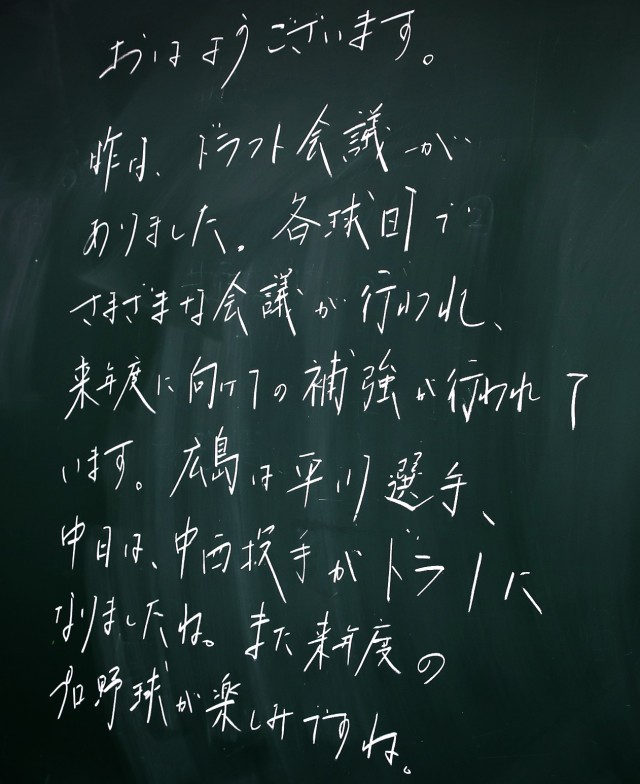 おはようございます。
昨日、ドラフト会議が
ありました。各球団で
さまざまな会議が行われ、
来年度に向けての補強が行われて
います。広島は平川選手、
中日は、中西投手がドラ1に
なりましたね。また来年度の
プロ野球が楽しみですね。